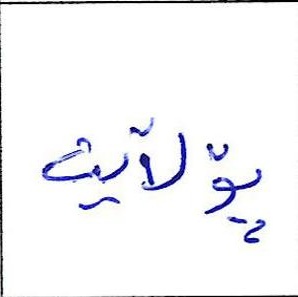 پۆلایت